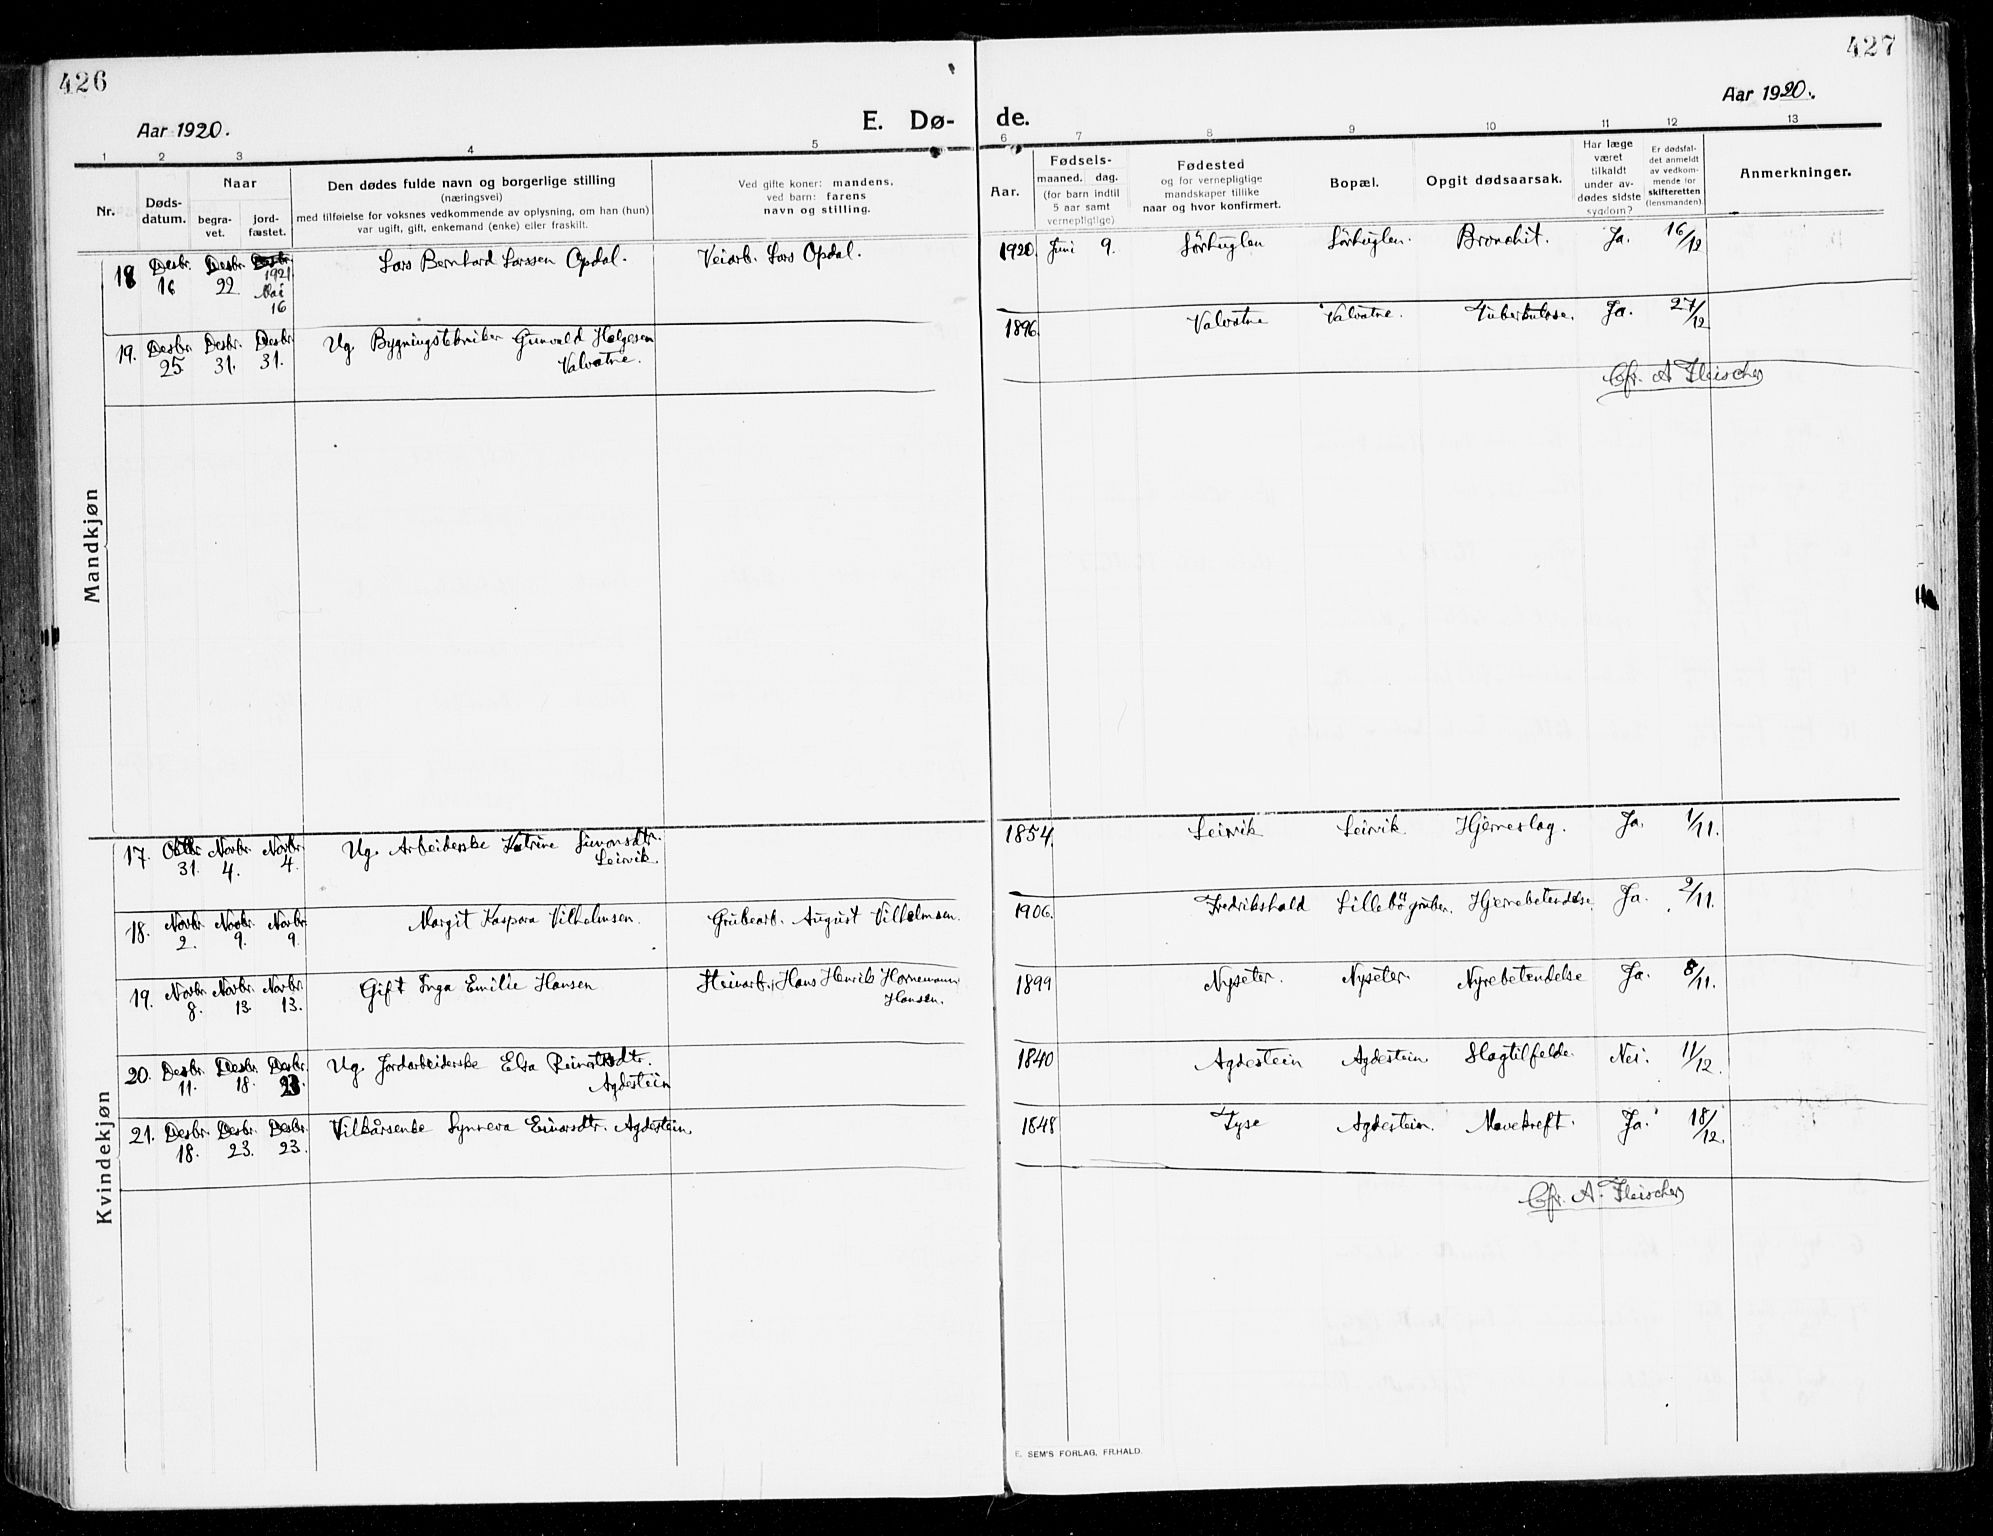 426
427
Aar 1920.
E. Dø-
de.
Aar 1920.
1 2 3 4 5 6 7 8 9 10 11 12 13
Nr.
Døds-
datum.
Naar
begra-
vet.
jord-
fæstet.
Den dødes fulde navn og borgerlige stilling
(næringsvei)
med tilføielse for voksnes vedkommende av oplysning, om han (hun)
var ugift, gift, enkemand (enke) eller fraskilt.
Ved gifte koner: mandens.
ved barn: farens
navn og stilling.
Aar.
Fødsels-
maaned. dag.
(for barn indtil
5 aar samt
vernepligtige)
Fødested
og for vernepligtige
mandskaper tillike
naar og hvor konfirmert.
Bopæl.
Opgit dødsaarsak.
Har læge
været
tilkaldt
under av-
dødes sidste
sygdom?
Er dødsfal-
det anmeldt
av vedkom-
mende for
skifteretten
(lensmanden).
Anmerkninger.
Mandkjøn
18 Desbr. 16 Desbr. 22 Desbr. 1921 Mai 16 Lars Bernhard Larssen Opdal. Veiarb. Lars Opdal. 1920. Juni 9. Sörhuglen Sörhuglen. Bronchit. Ja. 16/12
19. Desbr. 25. Desbr. 31. Desbr. 31. Ug. Bygningstekniker Gunvald Helgesen
Valvatne. 1896. Valvatne Valvatne. Tuberkulose. Ja. 27/12
Chr. A Fleischer
Kvindekjøn
17. Oktbr. 31. Novbr. 4. Novbr. 4. Ug. Arbeiderske Katrine Simonsdtr.
Leirvik. 1854. Leirvik Leirvik Hjerneslag. Ja. 1/11.
18. Novbr. 2. Novbr. 9. Novbr. 9. Margit Kaspara Vilhelmsen. Grubearb. August Vilhelmsen. 1906. Fredrikshald Lillebö gruber. Hjernebetendelse. Ja. 2/11.
19. Novbr. 8. Novbr. 13. Novbr. 13. Gift Inga Emilie Hansen Hans Henrik Hornemann
Hansen. 1899 Nyseter. Nyseter. Nyrebetendelse Ja. 8/11.
20. Desbr. 11. Desbr. 18. Desbr. 23 Ug. Jordarbeiderske Elsa
Agdestein 1840 Agdestein Agdestein Slagtilfelde. Nei. 11/12.
21. Desbr. 18. Desbr. 23. Desbr. 23. Vilkårsenke Synneva Einarsdtr. Agdestein. 1848 Tyse Agdestein. Mavekreft. Ja. 18/12.
Chr. A. Fleischer
E. SEM'S FORLAG, FR.HALD.